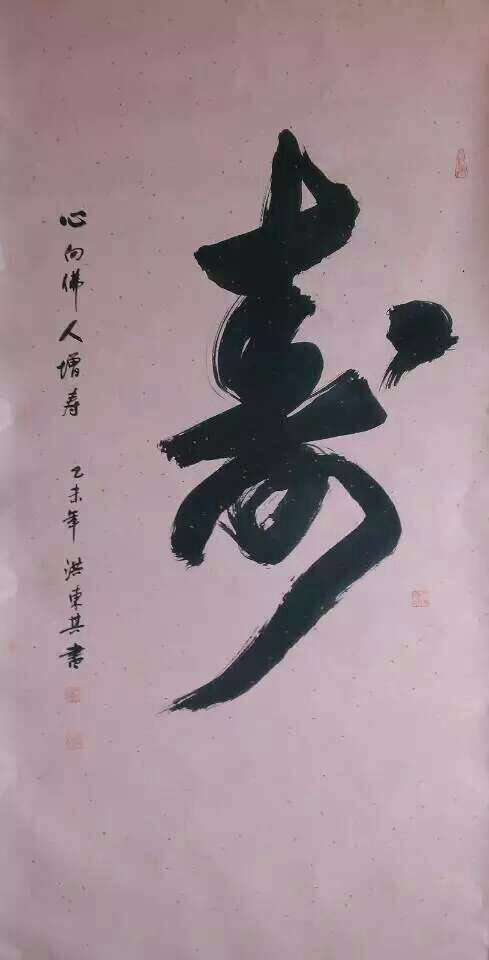 寿
心向佛人增寿
乙未年 洪東其書